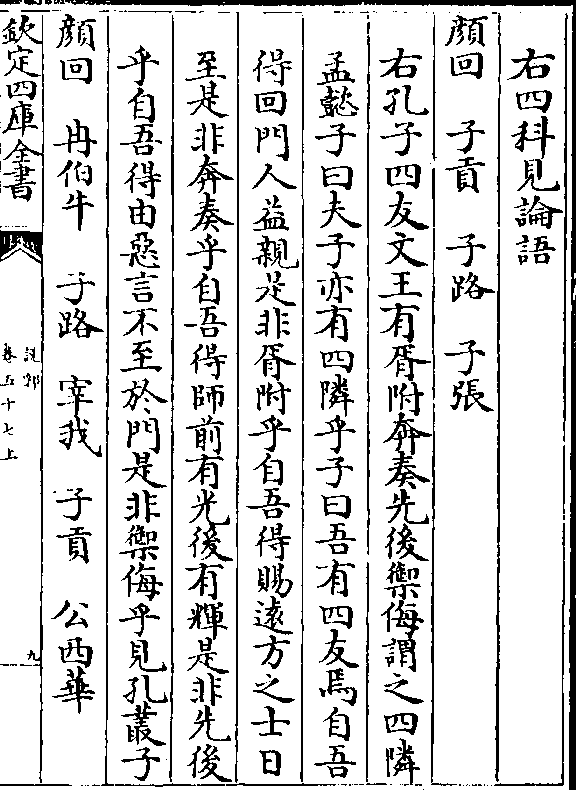 右四科見論語
顔回　子貢　子路　子張
右孔子四友文王有胥附奔奏先後禦侮謂之四隣
孟懿子曰夫子亦有四隣乎子曰吾有四友焉自吾
得回門人益親是非胥附乎自吾得賜遠方之士日
至是非奔奏乎自吾得師前有光後有輝是非先後
乎自吾得由惡言不至於門是非禦侮乎見孔叢子
顔回　冉伯牛　子路　宰我　子貢　公西華
欽定四庫全書
說郛
卷五十七上
九